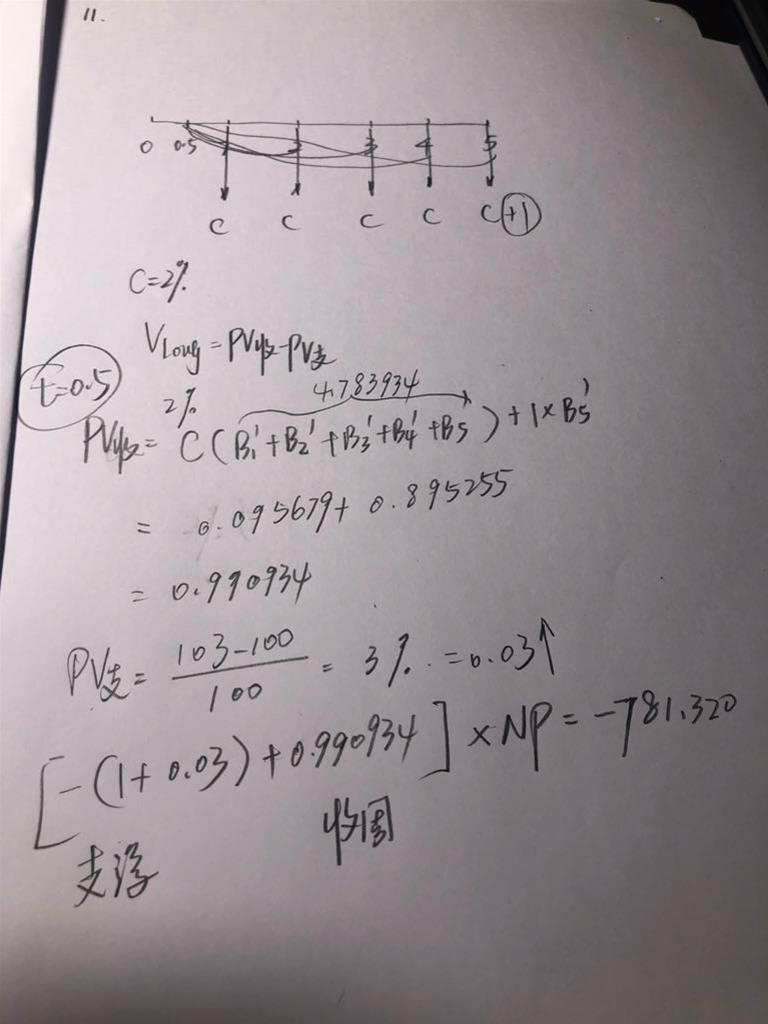 11.
0 0.5 1 2 3 4 5
C C C C C+1
C=2%
V Long = PV收-PV支
t=0.5
2% 4.783934
PV收= C(B1'+B2'+B3'+B4'+B5')+1×B5'
= 0.095679+0.895255
= 0.990934
PV支= 103-100/100 = 3%. =0.03↑
[-(1+0.03)+0.990934]×NP=-781.320
支浮 收固